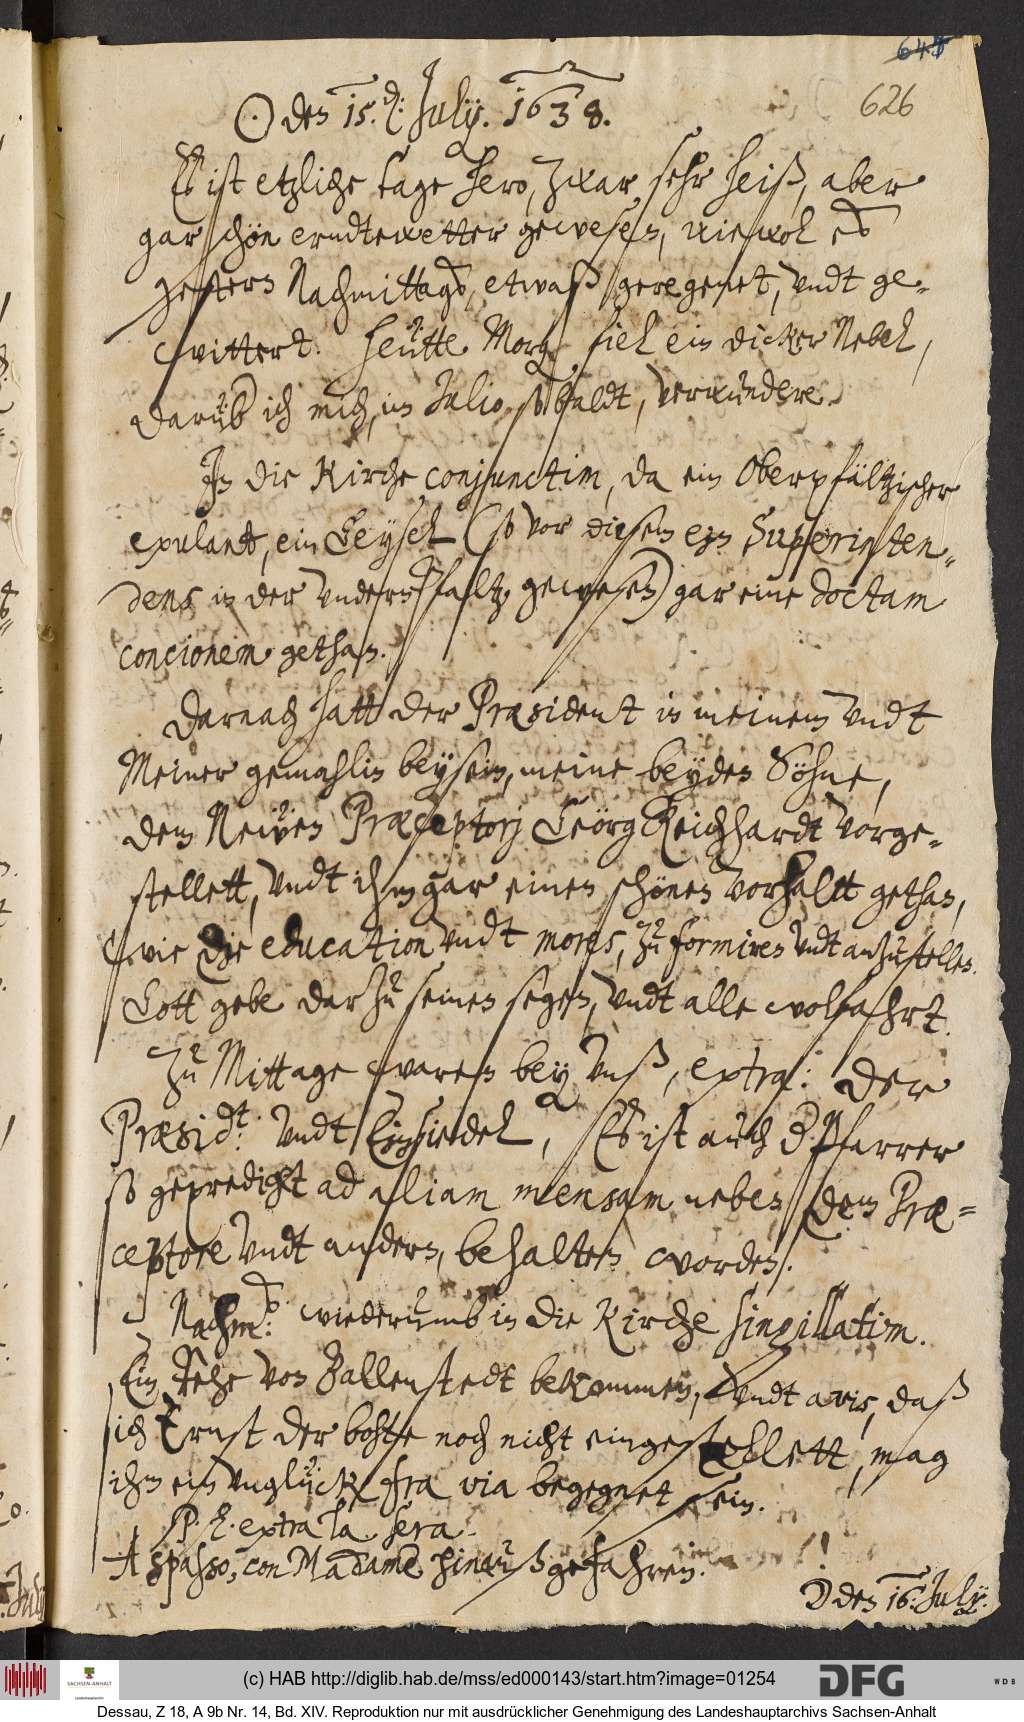 648
626
☉ den 15. d: July. 1638.
Es ist etzliche tage hero, zwar sehr heiß, aber
gar schön erndtewetter gewesen, wiewol es
gestern Nachmittags, etwaß geregenet, vndt ge-
wittert. Heütte Morg fiel ein dicker Nebel,
darüb ich mich, im Julio, so baldt, verwundere.
In die Kirche conjunctim, da ein Oberpfältzischer
exulant, ein Geysel (so vor diesem ein Superinten-
dens in der vndern Pfaltz, gewesen) gar eine doctam
concionem gethan.
Darnach hatt der Præsident in meinem vndt
Meiner gemahlin beysein, meine beyden Söhne,
dem Neüen Præceptorj Geörg Reichhardt vorge-
stellett, vndt ihm gar einen schönen vorhaltt gethan,
wie die education vndt mores, zu formiren vndt anzustellen.
Gott gebe darzu seinen segen, vndt alle wolfahrt.
Zu Mittage waren bey vnß, extra: der
Præsidt: vndt Einsiedel, Es ist auch d. Pfarrer
so geprediget ad aliam mensam neben dem Præ=
ceptore vndt andern, behalten worden.
Nachm: wiederumb in die Kirche singillatim.
Ein Rehe von Ballenstedt bekommen, vndt avis, daß
ich Ernst der bohte noch nicht eingestellett, mag
ihm ein vnglück fra via begegnet sein.
P. E. extra la sera.
A spasso, con Madame hinauß gefahren.
☽ den 16. July.
(c) HAB http://diglib.hab.de/mss/ed000143/start.htm?image=01254
SACHSEN-ANHALT
DFG
WDB
Dessau, Z 18, A 9b Nr. 14, Bd. XIV. Reproduktion nur mit ausdrücklicher Genehmigung des Landeshauptarchivs Sachsen-Anhalt